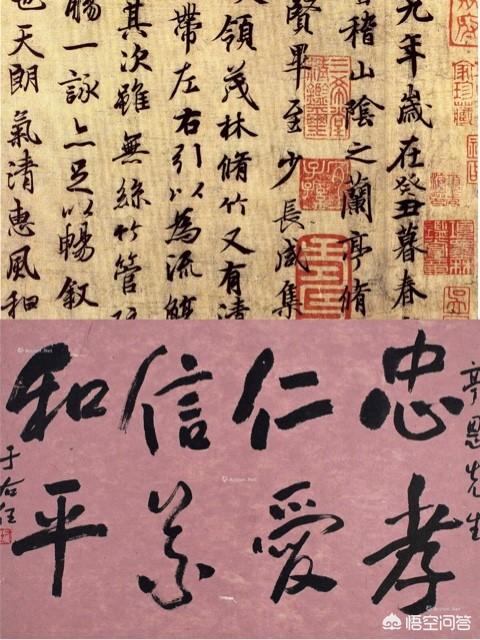 九年歲在癸丑暮春
稽山陰之蘭亭脩
賢畢至少長咸集
領茂林脩竹又有清
帶左右引以為流觴
其次雖無絲竹管
觴一詠亦足以暢敘
也天朗氣清惠風和
三希堂精鑑璽
宜子孫
恩先生
忠孝
仁愛
信義
和平
于右任
悟空问答